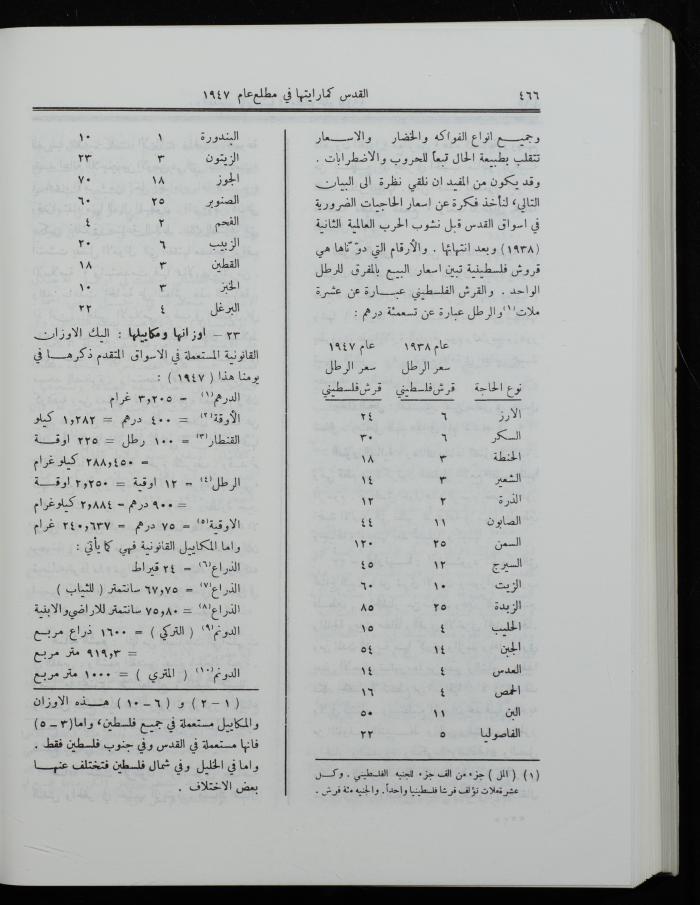 ٤٦٦
القدس كما رايتها في مطلع عام ١٩٤٧
وجميع انواع الفواكه والخضار والاسعار
تتقلب بطبيعة الحال تبعاً للحروب والأضطرابات .
وقد يكون من المفيد ان نلقي نظرة الى البيان
التالي، لنأخذ فكرة عن اسعار الحاجيات الضرورية
في اسواق القدس قبل نشوب الحرب العالمية الثانية
(١٩٣٨) وبعد انتهائها . والأرقام التي دوّناها هي
قروش فلسطينية تبين اسعار البيع بالمفرق للرطل
الواحد . والقرش الفلسطيني عبارة عن عشرة
ملات(١) والرطل عبارة عن تسعمئة درهم :
عام ١٩٣٨ عام ١٩٤٧
سعر الرطل سعر الرطل
نوع الحاجة قرش فلسطيني قرش فلسطيني
الارز ٦ ٢٤
السكر ٦ ٣٠
الحنطة ٣ ١٨
الشعير ٣ ١٤
الذرة ٢ ١٢
الصابون ١١ ٤٤
السمن ٢٥ ١٢٠
السيرج ١٢ ٤٥
الزيت ١٠ ٦٠
الزبدة ٢٥ ٨٥
الحليب ٤ ١٥
الجبن ١٤ ٥٤
العدس ٤ ١٤
الحمص ٤ ١٦
البن ١١ ٥٠
الفاصوليا ٥ ٢٢
(١) ( المل ) جزء من الف جزء للجنيه الفلسطيني . وكل
عشرة ملات تؤلف قرشا فلسطينيا واحداً . والجنيه مئة قرش .
البندورة ١ ١٠
الزيتون ٣ ٢٣
الجوز ١٨ ٧٠
الصنوبر ٢٥ ٦٠
الفحم ٢ ٤
الزبيب ٦ ٢٠
القطين ٣ ١٨
الخبز ٣ ١٠
البرغل ٤ ٢٢
٢٣ – اوزانها ومكاييلها : اليك الاوزان
القانونية المستعملة في الاسواق المتقدم ذكرها في
يومنا هذا ( ١٩٤٧ ) :
الدرهم(١) = ٣,٢٠٥ غرام
الأوقة(٢) = ٤٠٠ درهم = ١,٢٨٢ كيلو
القنطار(٣) = ١٠٠ رطل = ٢٢٥ اوقة
= ٢٨٨,٤٥٠ كيلو غرام
الرطل(٤) – ١٢ اوقية = ٢,٢٥٠ اوقة
= ٩٠٠ درهم – ٢,٨٨٤ كيلو غرام
الاوقية(٥) = ٧٥ درهم – ٢٤٠,٦٣٧ غرام
واما المكاييل القانونية فهي كما يأتي :
الذراع(٦) – ٢٤ قيراط
الذراع(٧) = ٦٧,٧٥ سانتمتر ( للثياب )
الذراع(٨) = ٧٥,٨٠ سانتمتر للاراضي والابنية
الدونم(٩) ( التركي ) = ١٦٠٠ ذراع مربع
= ٩١٩,٣ متر مربع
الدونم(١٠) ( المتري ) = ١٠٠٠ متر مربع
( ١ – ٢ ) و ( ٦ – ١٠ ) هذه الاوزان
والمكاييل مستعملة في جميع فلسطين، واما (٣ – ٥)
فانها مستعملة في القدس وفي جنوب فلسطين فقط .
واما في الخليل وفي شمال فلسطين فتختلف عنها
بعض الاختلاف .